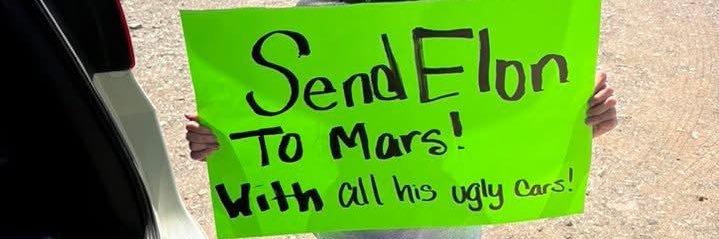 Send Elon
To Mars!
With all his ugly cars!